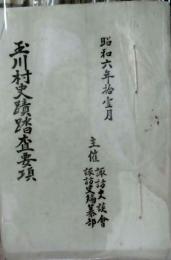 昭和六年拾壹月
玉川村史蹟踏査要項
主催
諏訪史談會
諏訪史編纂部